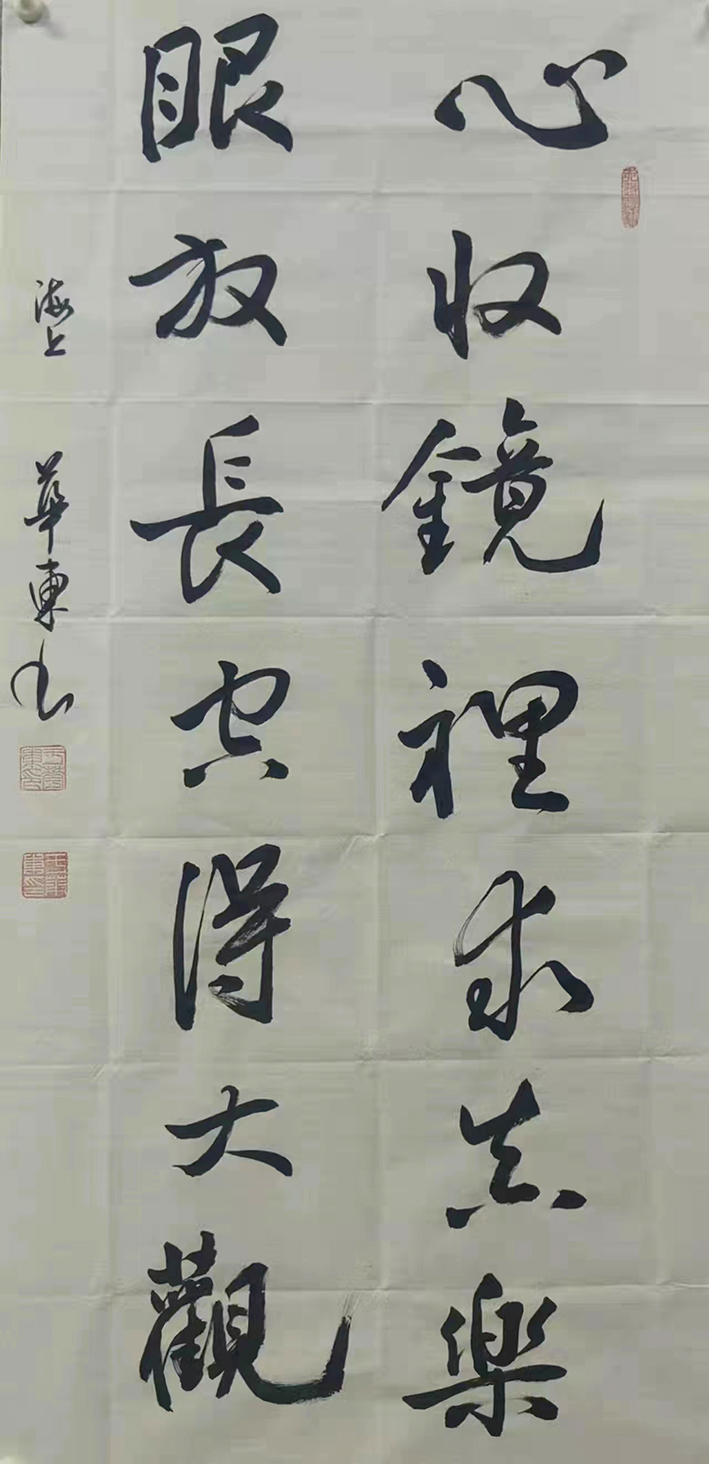 心收鏡裡求真樂
眼放長空得大觀
海上 華東书